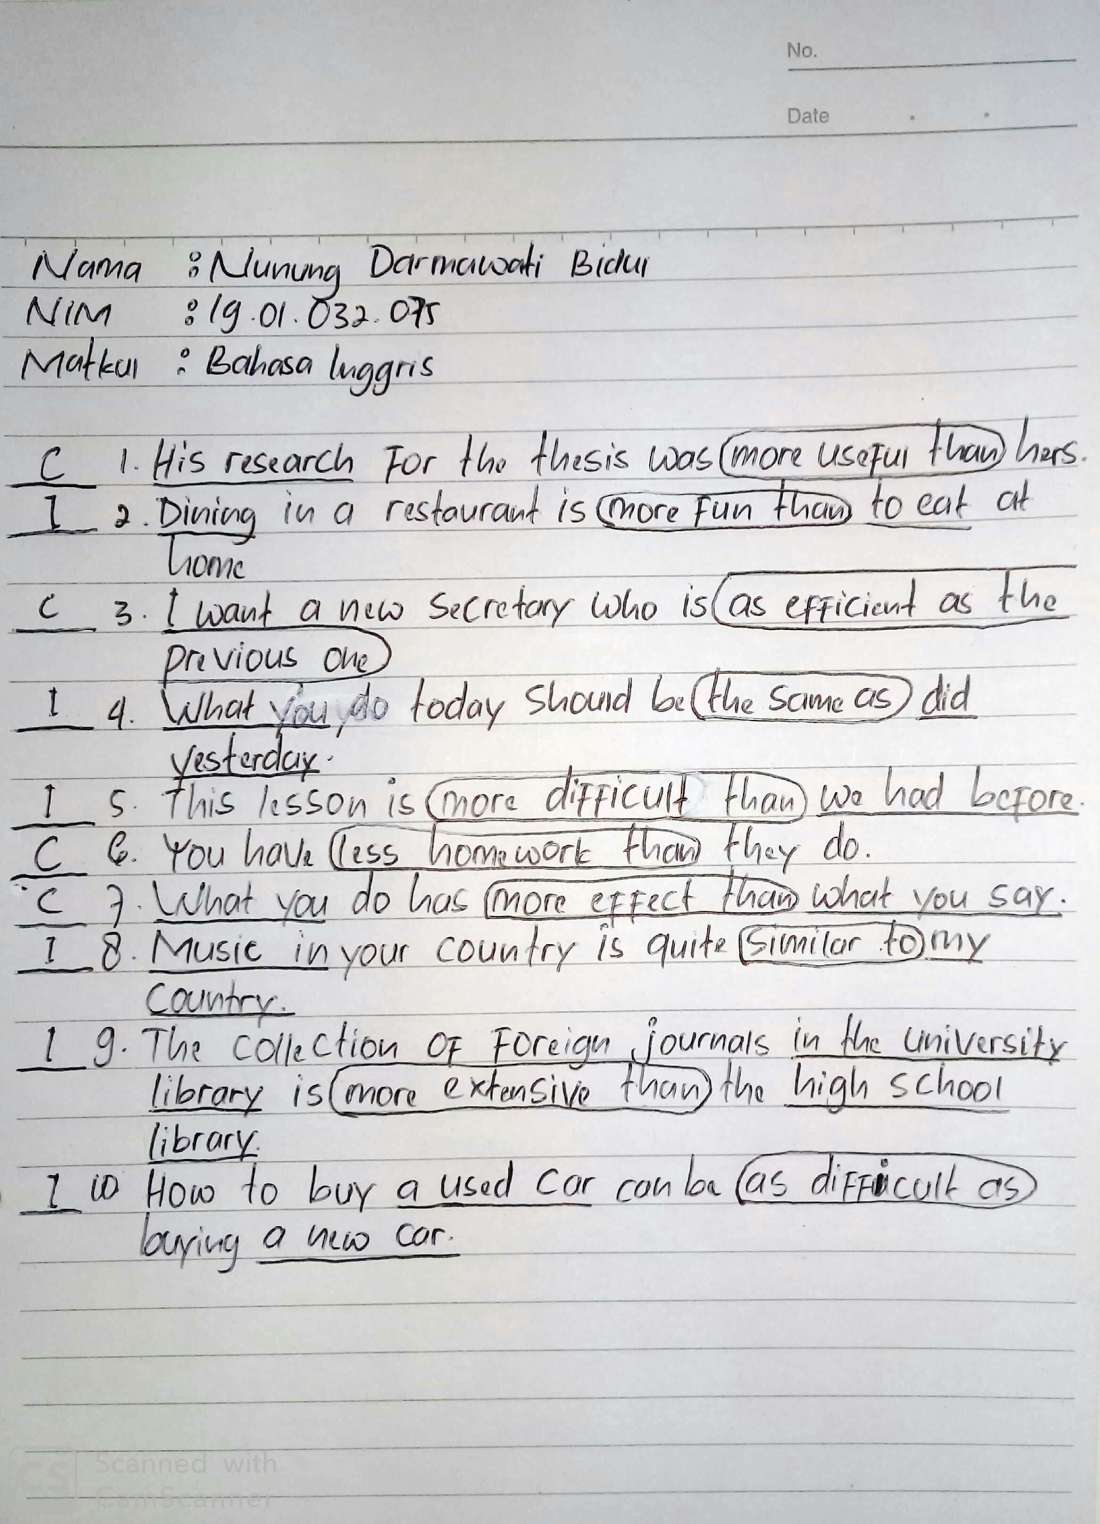 No.
Date
Nama : Nunung Darmawati Bidui
NIM : 19.01.032.075
Matkul : Bahasa Inggris
C 1. His research For the thesis was more useful than hers.
I 2. Dining in a restaurant is more fun than to eat at
home
C 3. I want a new secretary who is as efficient as the
previous one
I 4. What you do today should be the same as did
yesterday.
I 5. This lesson is more difficult than we had before.
C 6. You have less homework than they do.
C 7. What you do has more effect than what you say.
I 8. Music in your country is quite similar to my
Country.
I 9. The collection of Foreign journals in the university
library is more extensive than the high school
library.
I 10 How to buy a used car can be as difficult as
buying a new car.
CS Scanned with
CamScanner